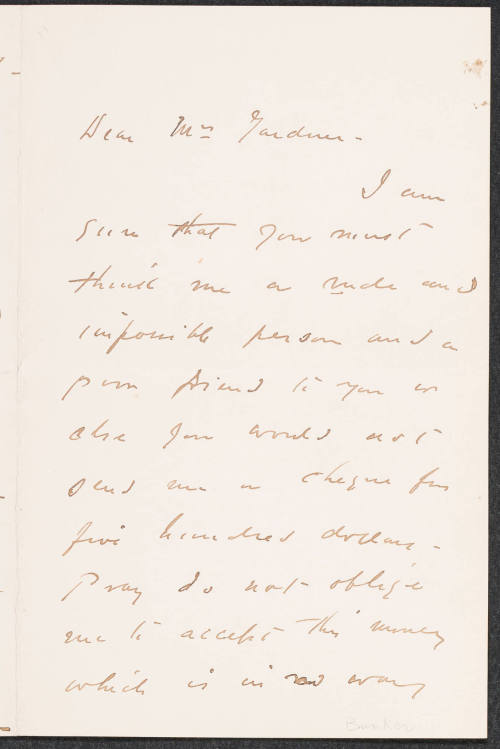 Dear Mrs Gardner -
I am
sure that you must
think me a rude and
impossible person and a
poor friend to you or
else you would not
send me a cheque for
five hundred dollars -
Pray do not oblige
me to accept this money
which is in no way
Bunker